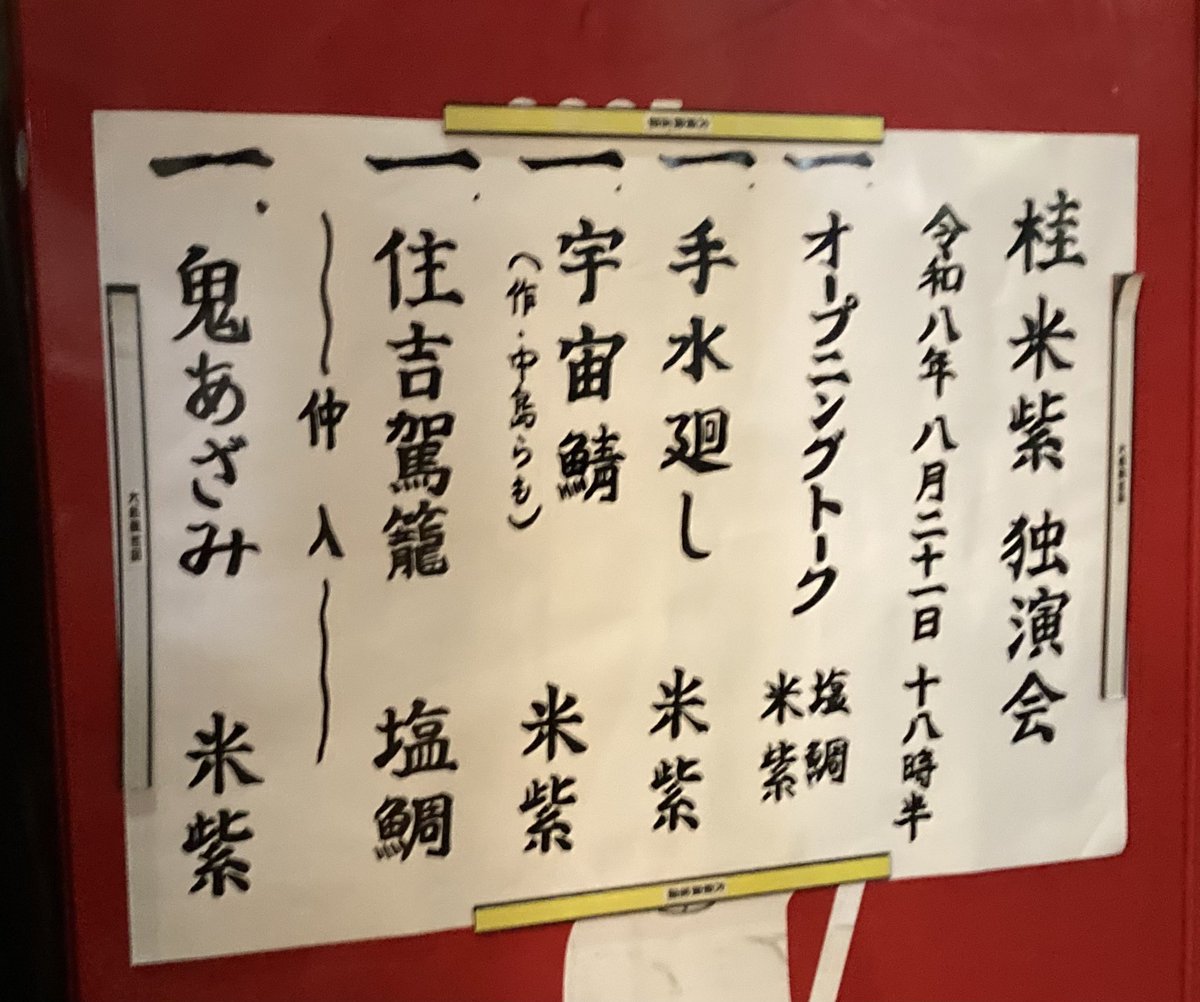 桂米紫 独演会
令和八年 八月二十一日 十八時半
一、オープニングトーク 塩鯛
米紫
一、手水廻し 米紫
一、宇宙鯖 米紫
(作・中島らも)
一、住吉駕籠 塩鯛
〜仲入〜
一、鬼あざみ 米紫